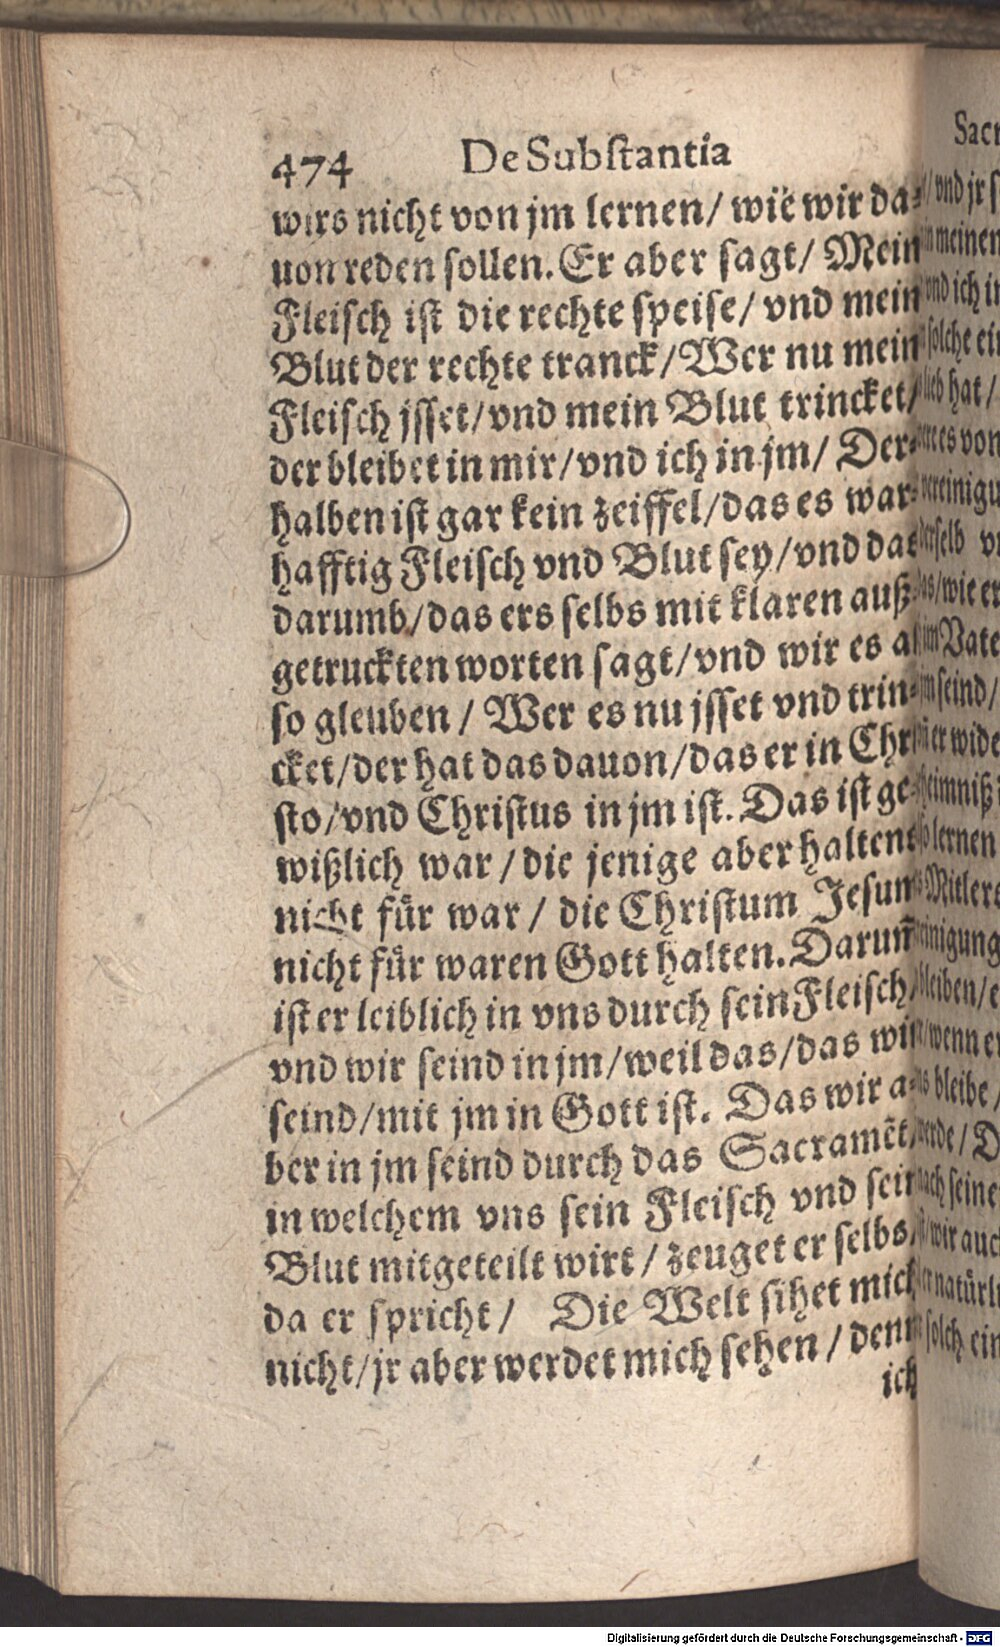 474 De Substantia
wirs nicht von jm lernen/ wie wir da-
uon reden sollen. Er aber sagt/ Mein
Fleisch ist die rechte speise/ vnd mein
Blut der rechte tranck/ Wer nu mein
Fleisch jsset/ vnd mein Blut trincket/
der bleibet in mir/ vnd ich in jm/ Der-
halben ist gar kein zeiffel/ das es war-
hafftig Fleisch vnd Blut sey/ vnd das
darumb/ das ers selbs mit klaren auß-
getruckten worten sagt/ vnd wir es al
so gleuben/ Wer es nu jsset vnd trin-
cket/ der hat das dauon/ das er in Chri
sto/ vnd Christus in jm ist. Das ist ge-
wißlich war/ die jenige aber haltens
nicht für war/ die Christum Jesum
nicht für waren Gott halten. Darum̃
ist er leiblich in vns durch sein Fleisch/
vnd wir seind in jm/ weil das/ das wir
seind/ mit jm in Gott ist. Das wir a-
ber in jm seind durch das Sacramẽt/
in welchem vns sein Fleisch vnd sein
Blut mitgeteilt wirt/ zeuget er selbs/
da er spricht/ Die Welt sihet mich
nicht/ jr aber werdet mich sehen/ denn
ich
Digitalisierung gefördert durch die Deutsche Forschungsgemeinschaft - DFG